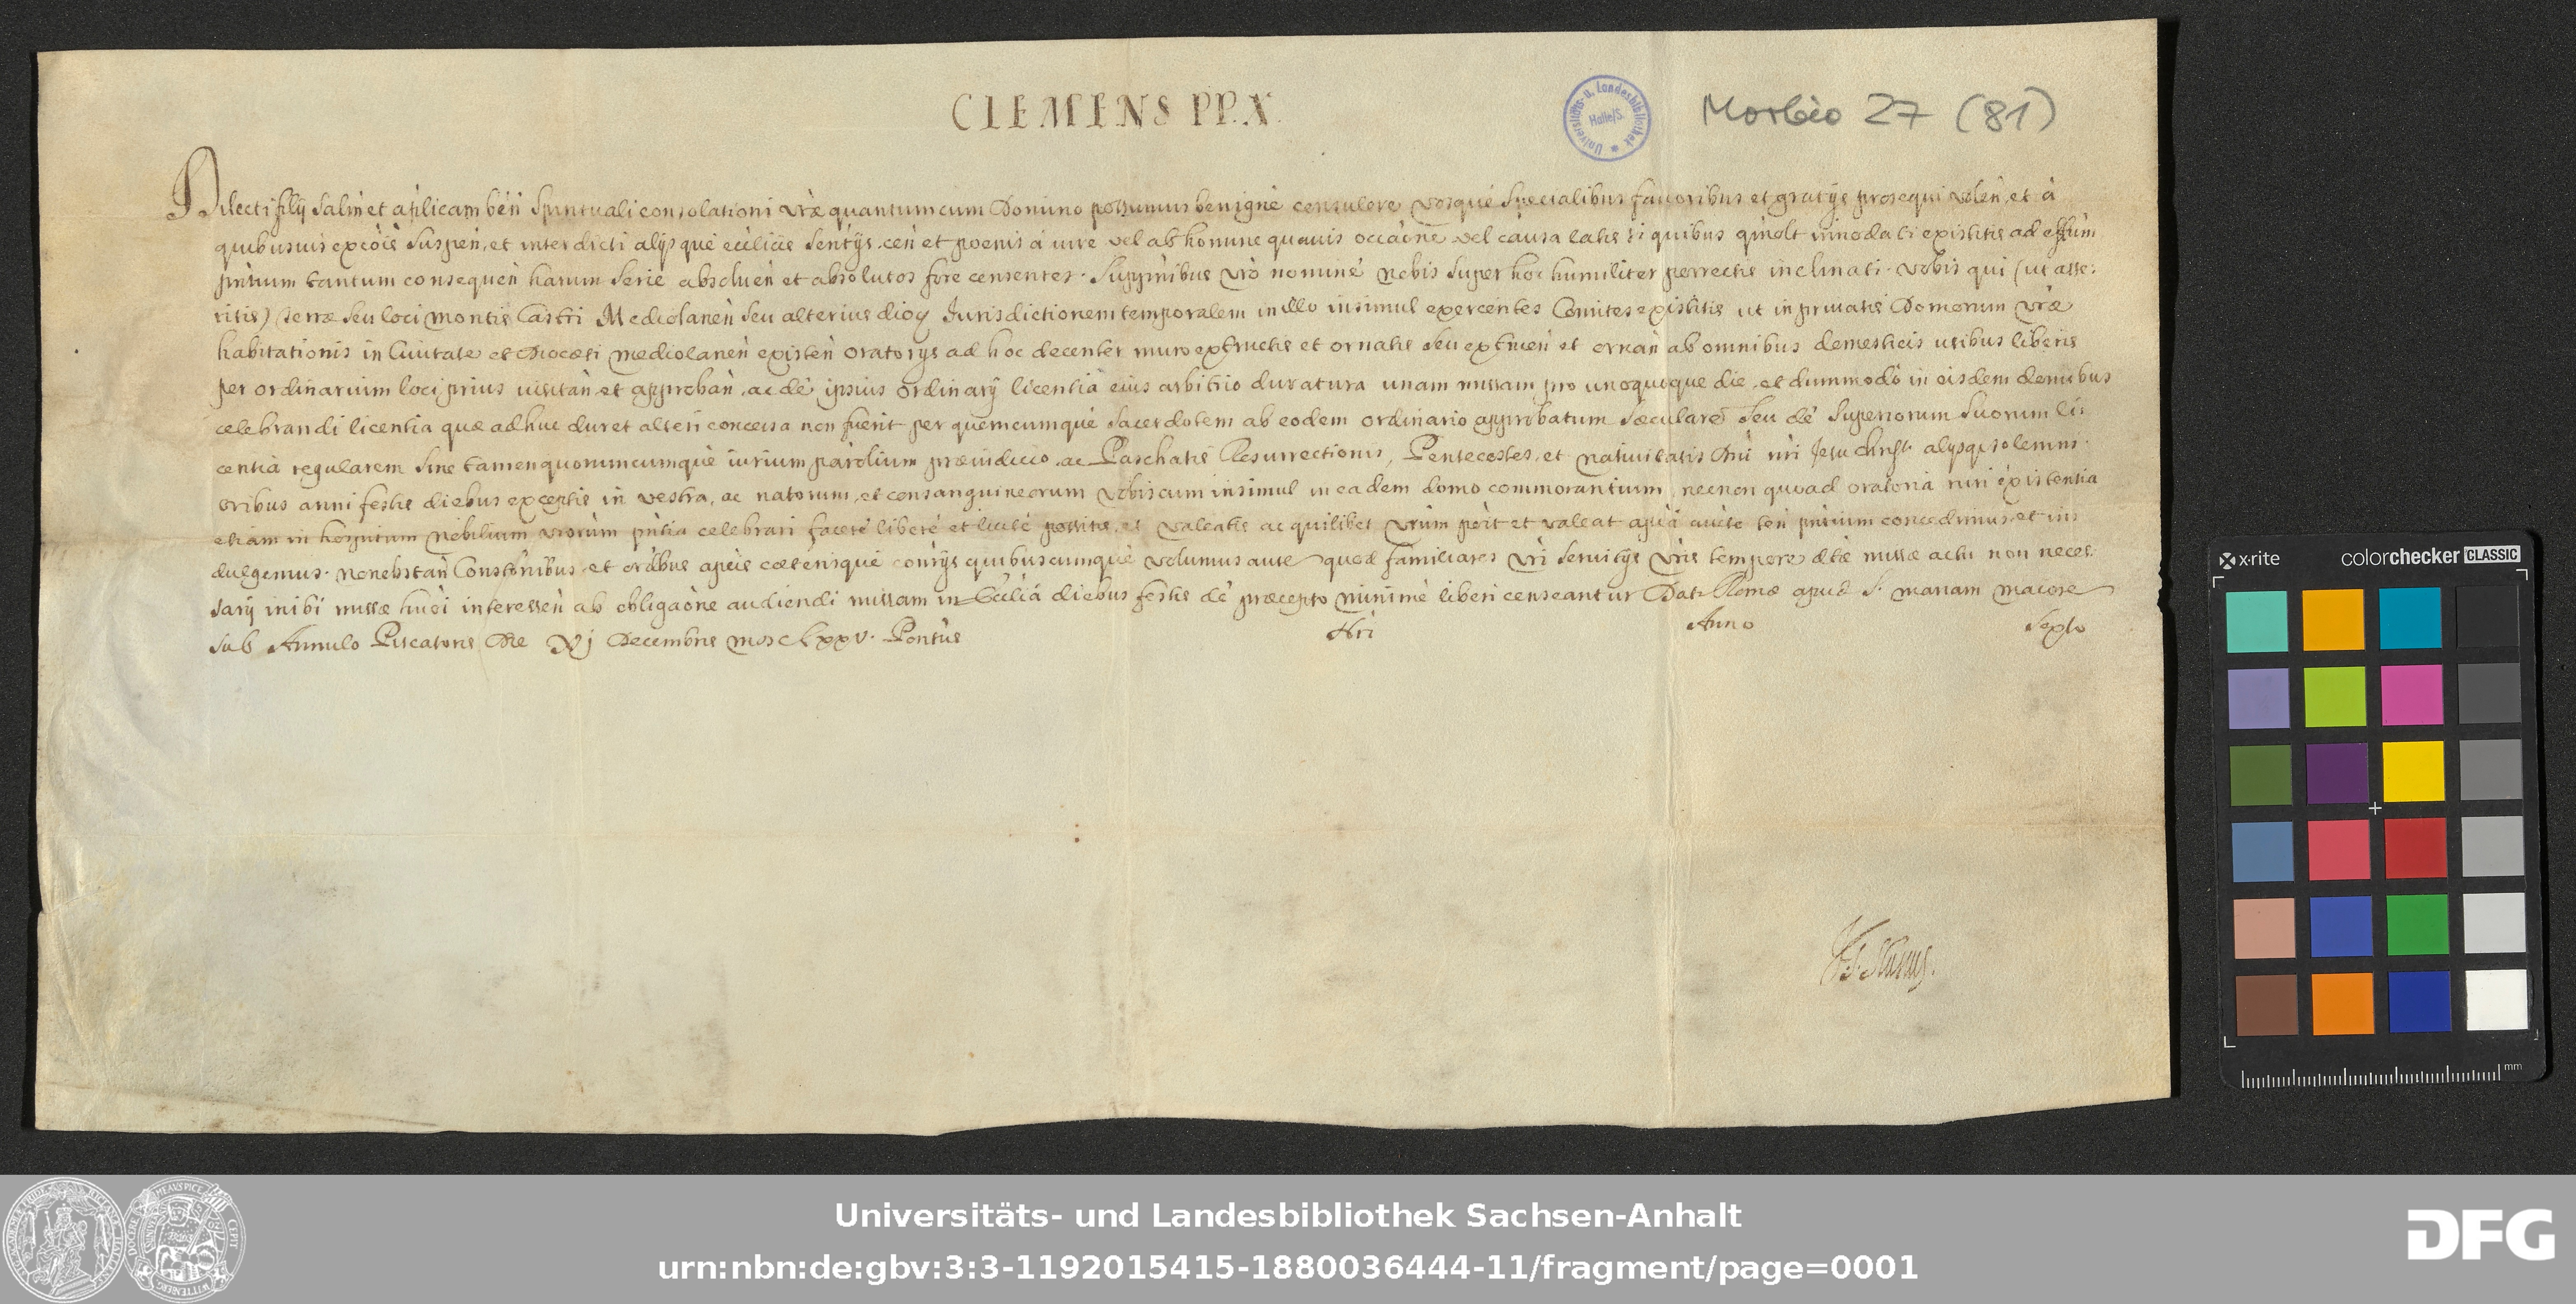 CLEMENS PP. X.
Universitäts- u. Landesbibliothek
Halle/S.
Morbio 27 (81)
Dilecti filij salm et aplicam ben Spirituali consolationi vrae quantum cum Domino possumus benigne consulere vosque specialibus favoribus et gratijs prosequi volen, et à
quibusuis excois suspen, et interdicti alijsque ecclicis sentijs, cen et poenis à iure vel ab homine quauis occaone vel causa latis si quibus qmolt innodati existitis ad effum
pntium tantum consequen harum serie absoluen et absolutos fore censentes. Suppnibus vro nomine nobis super hoc humiliter porrectis inclinati. Vobis qui (ut asse:
ritis) Terrae seu loci montis Castri Mediolanen seu alterius dioc Jurisdictionem temporalem in illo insimul exercentes Comites existitis ut in priuatis Domorum vrae
habitationis in Ciuitate et Diocesi mediolanen existen oratorijs ad hoc decenter muro extructis et ornatis seu extruen et ornan ab omnibus domesticis usibus liberis
per ordinarium loci prius uisitan et approban, ac de ipsius ordinarij licentia eius arbitrio duratura unam missam pro unoquoque die, et dummodo in eisdem domibus
celebrandi licentia quae adhuc duret alteri concessa non fuerit per quemcumque sacerdotem ab eodem ordinario approbatum saecularé seu de superiorum suorum li:
centia regularem sine tamen quorumcumque iurium parolium praeiudicio, ac Paschatis Resurrectionis, Pentecostes, et natiuitatis Dni nri Jesu Christi alijsq; solemni:
oribus anni festis diebus exceptis in vestra, ac natorum, et consanguineorum vobiscum insimul in eadem domo commorantium, necnon quoad oratoria ruri existentia
etiam in hospitum nobilium vrorum pntia celebrari facere libere et licite possitis, et valeatis ac quilibet vrum poit et valeat aplica aucte ten pntium concedimus, et in:
dulgemus. Nonobstan Constonibus et ordbus aplicis caeterisque conrijs quibuscumque volumus aute quod familiares vri seruitijs vris tempore dtae missae actu non neces:
sarij inibi missae huoi interessen ab obligaone audiendi missam in Ecclia diebus festis de praecepto minime liberi censeantur Dat. Romae apud S. mariam maiore
sub Annulo Piscatoris Die XI Decembris MDCLXXV. Pontus Nri Anno Sexto
x-rite
colorchecker CLASSIC
mm
Universitäts- und Landesbibliothek Sachsen-Anhalt
urn:nbn:de:gbv:3:3-1192015415-1880036444-11/fragment/page=0001
DFG